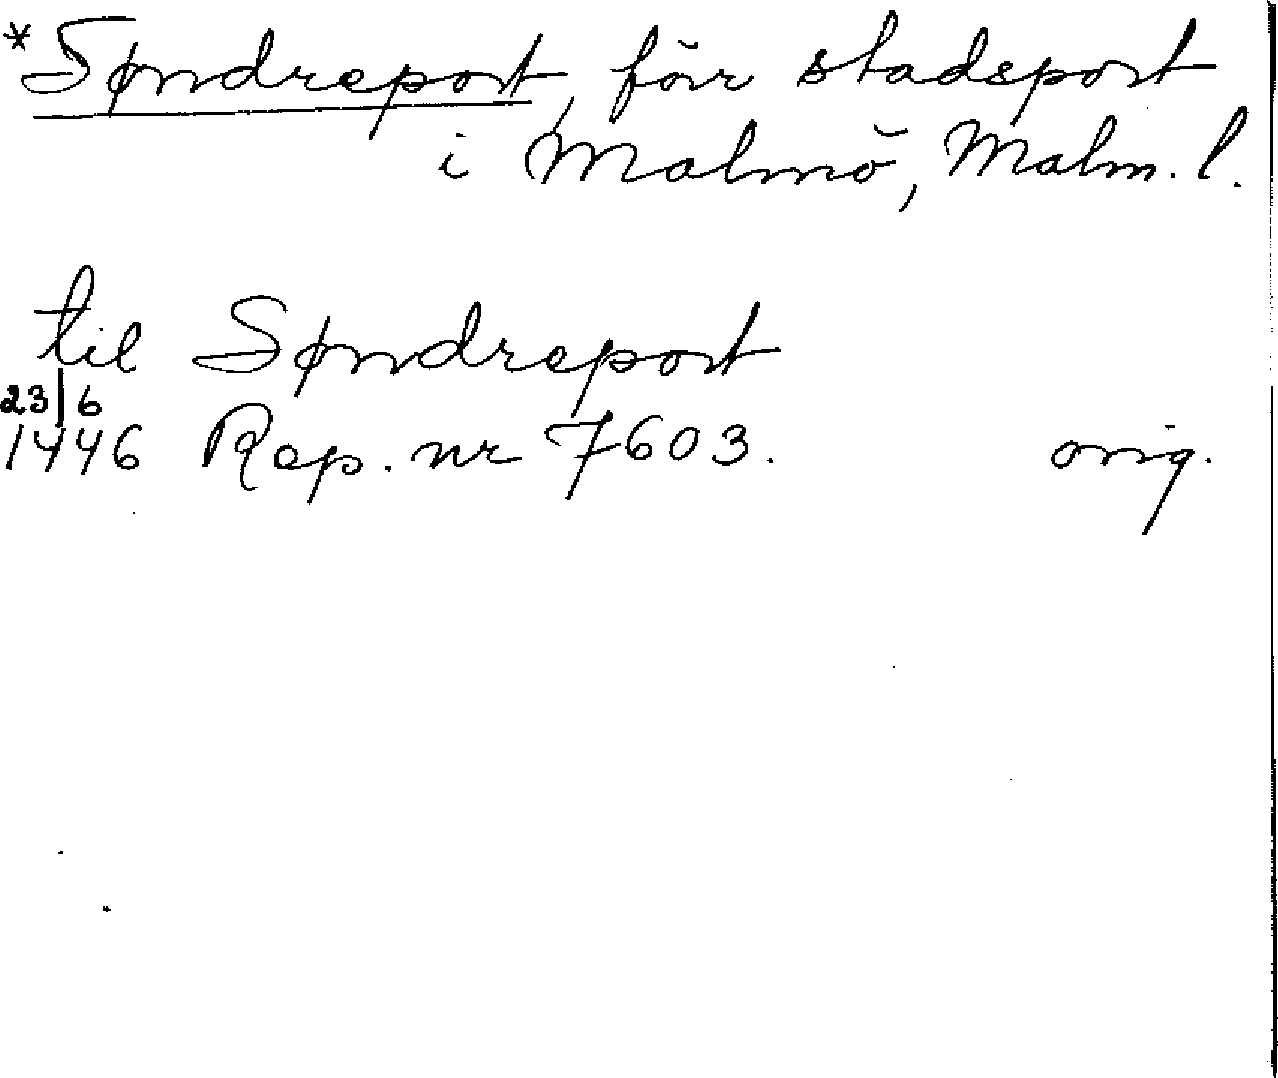 *Søndreport, förr stadsport
i Malmö, Malm. l.
til Søndreport
23/6
1446 Rep. nr 7603. orig.